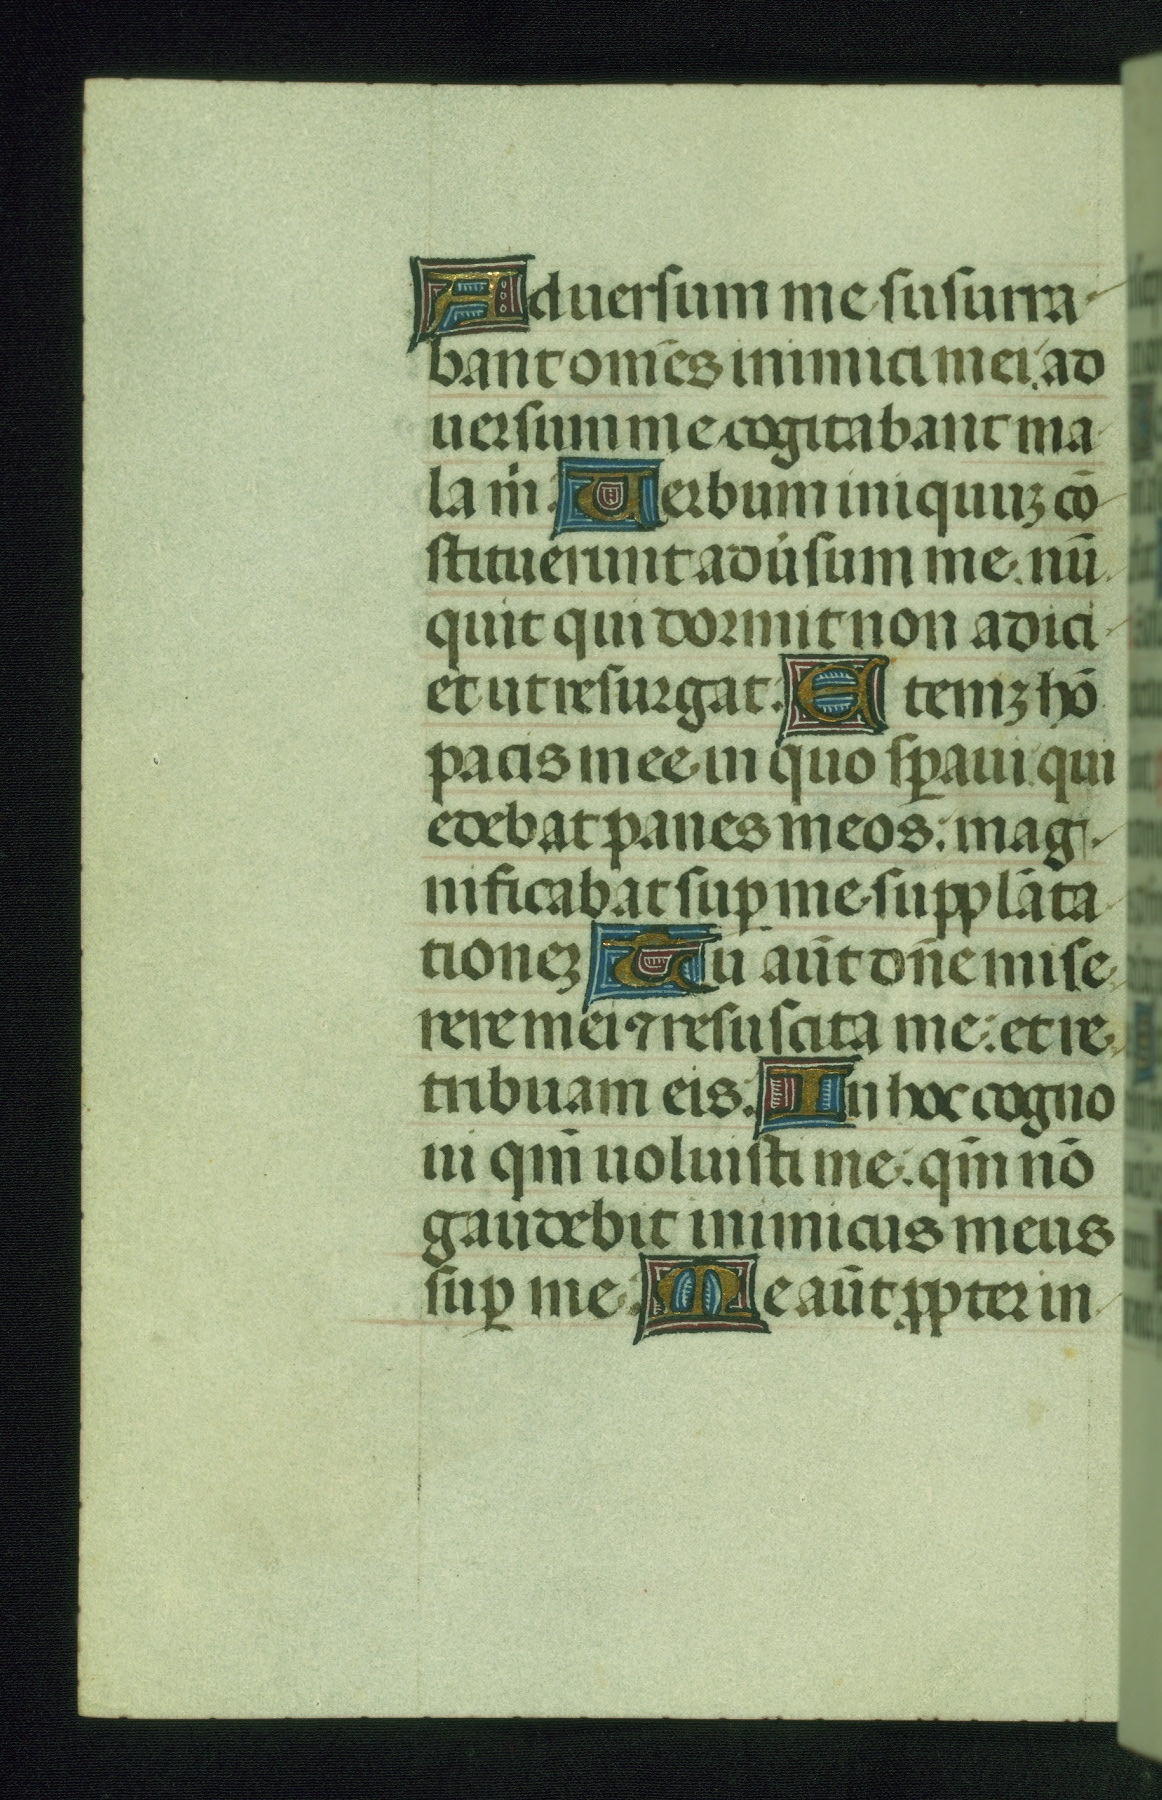 Aduersum me susurra
bant om̄es inimici mei. ad
uersum me cogitabant ma
la m̓i. Verbum iniquuꝫ cō
stituerunt adu̓sum me. nū
quit qui dormit non adici
et ut resurgat. Eteniꝫ hō
pacis mee in quo sꝑaui. qui
edebat panes meos: mag
nificabat suꝑ me supplāta
tioneꝫ Tu aūt dn̄e mise
rere mei ⁊ resuscita me: et re
tribuam eis. In hoc cogno
ui qm̄ uoluisti me: qm̄ nō
gaudebit inimicus meus
suꝑ me. Me aūt ꝓpter in